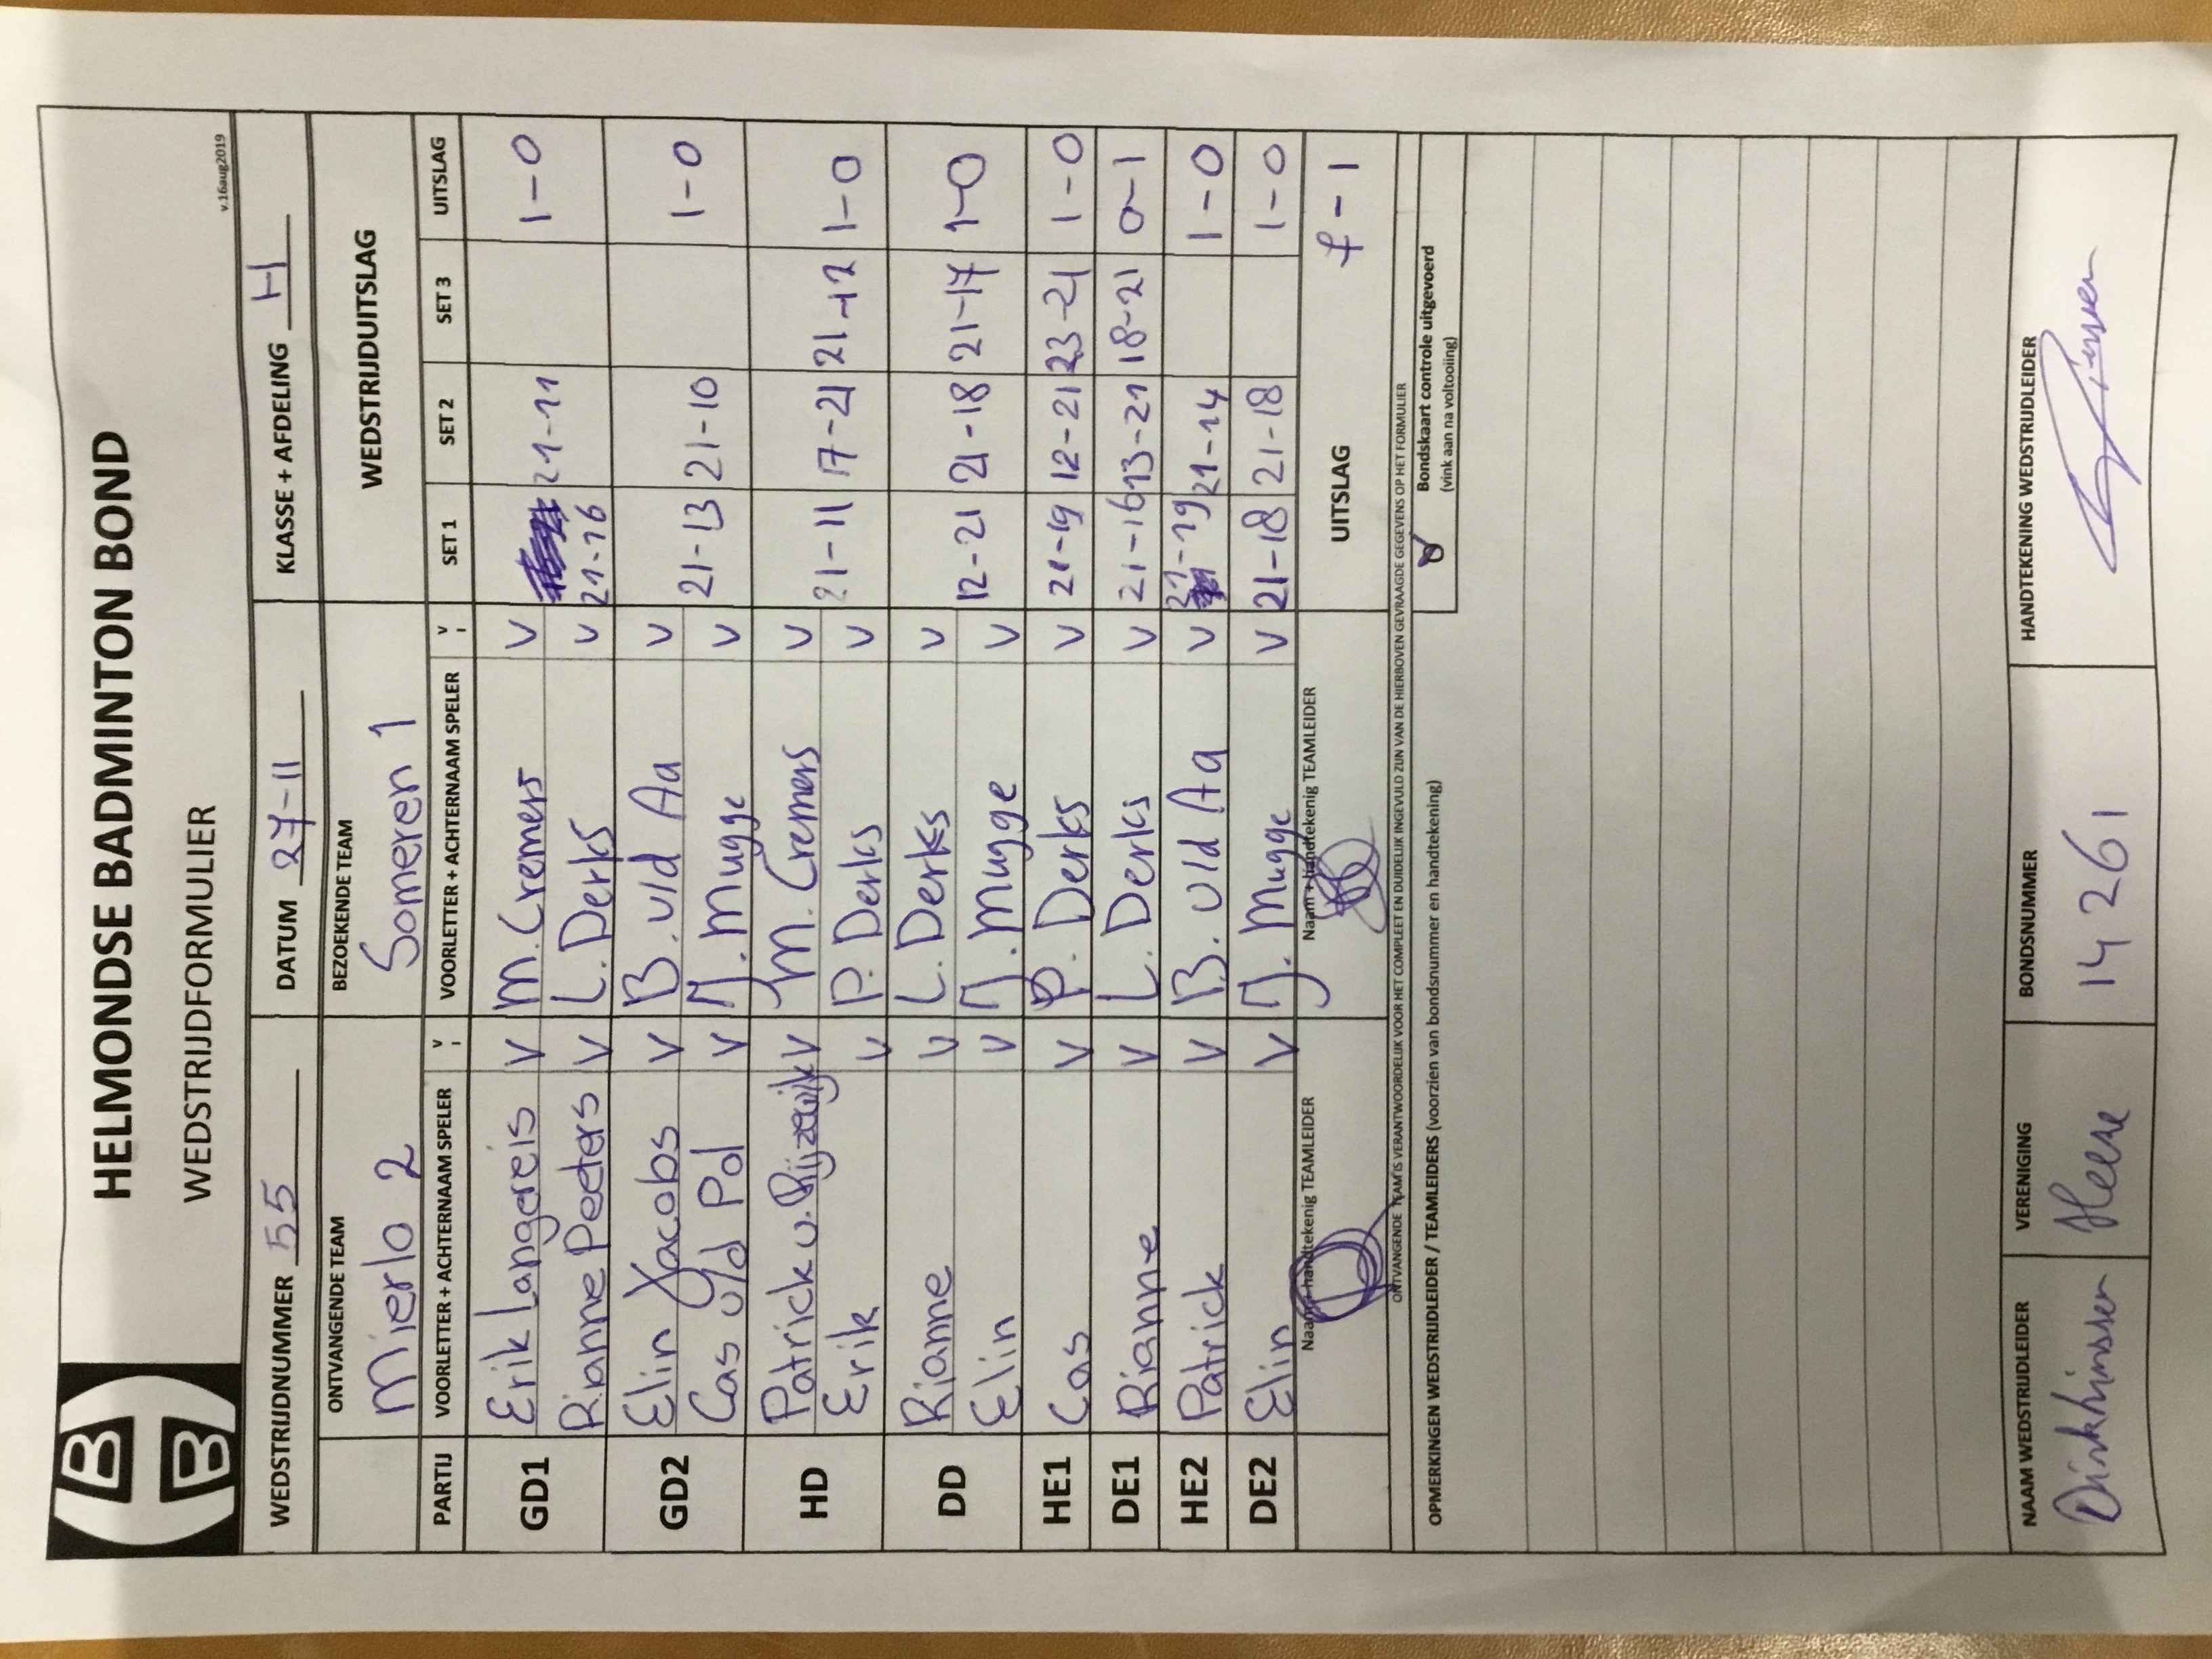 HELMONDSE BADMINTON BOND
WEDSTRIJDFORMULIER
v.16aug2019
WEDSTRIJDNUMMER 55 DATUM 27-11 KLASSE + AFDELING H
ONTVANGENDE TEAM BEZOEKENDE TEAM WEDSTRIJDUITSLAG
Mierlo 2 Someren 1
PARTIJ VOORLETTER + ACHTERNAAM SPELER V VOORLETTER + ACHTERNAAM SPELER V SET 1 SET 2 SET 3 UITSLAG
GD1 Erik Langereis V M. Cremers V 21-11 1-0
Rianne Peeters V L. Derks V 21-16
GD2 Elin Jacobs V B. v/d Aa V 21-13 21-10 1-0
Cas v/d Pol V J. Mugge V
HD Patrick v. Rijzewijk V M. Cremers V 21-11 17-21 21-12 1-0
Erik V P. Derks V
DD Rianne V L. Derks V 12-21 21-18 21-17 1-0
Elin V J. Mugge V
HE1 Cas V P. Derks V 21-19 12-21 23-21 1-0
DE1 Rianne V L. Derks V 21-16 13-21 18-21 0-1
HE2 Patrick V B. v/d Aa V 21-19 21-14 1-0
DE2 Elin V J. Mugge V 21-18 21-18 1-0
Naam + handtekenig TEAMLEIDER Naam + handtekenig TEAMLEIDER UITSLAG 7-1
ONTVANGENDE TEAM IS VERANTWOORDELIJK VOOR HET COMPLEET EN DUIDELIJK INGEVULD ZIJN VAN DE HIERBOVEN GEVRAAGDE GEGEVENS OP HET FORMULIER
OPMERKINGEN WEDSTRIJDLEIDER / TEAMLEIDERS (voorzien van bondsnummer en handtekening) Bondskaart controle uitgevoerd
(vink aan na voltooiing)
NAAM WEDSTRIJDLEIDER VERENIGING BONDSNUMMER HANDTEKENING WEDSTRIJDLEIDER
14261